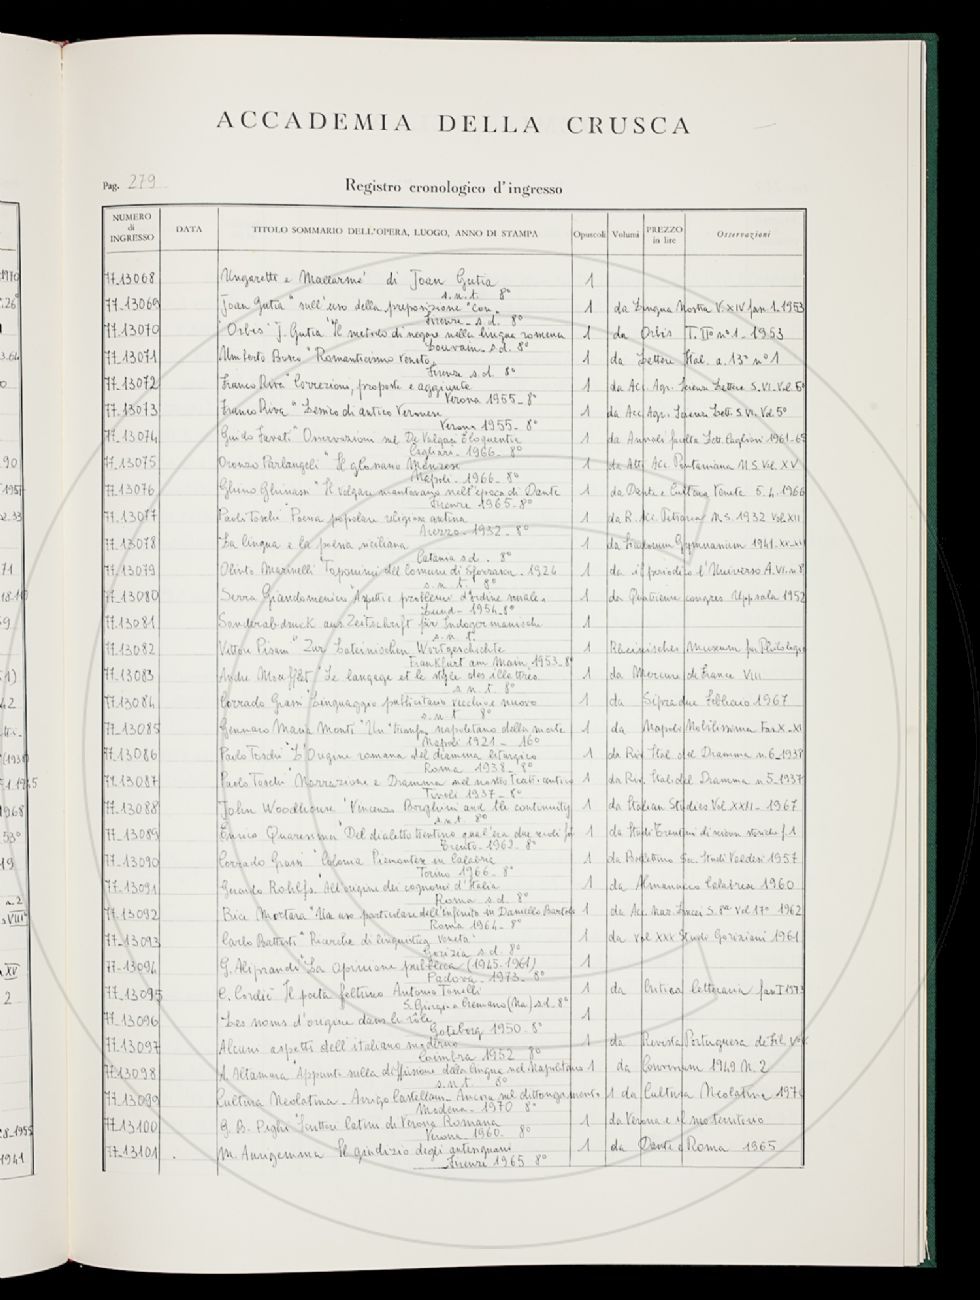 ACCADEMIA DELLA CRUSCA
Pag. 279
Registro cronologico d'ingresso
NUMERO di INGRESSO DATA TITOLO SOMMARIO DELL'OPERA, LUOGO, ANNO DI STAMPA Opuscoli Volumi PREZZO in lire Osservazioni
77-13068 Ungaretti e Mallarmé di Joan Gutia 1
s.n.t. 8°
77-13069 Joan Gutia "sull'uso della preposizione "con" 1 da Lingua Nostra V. XIV fasc. 1. 1953
Firenze s.d. 8°
77-13070 "Orbis" J. Gutia "Il metodo di negare nella lingua romena 1 da Orbis T. II° n° 1 - 1953
Louvain s.d. 8°
77-13071 Umberto Bosco "Romanticismo veneto. 1 da Lettere Ital. a. 13° n° 1
Firenze s.d. 8°
77-13072 Franco Riva "Correzioni, proposte e aggiunte 1 da Acc. Agr. Scienze Lettere S. VI. Vol. 5°
Verona 1955 - 8°
77-13073 Franco Riva "Lessico di antico Veronese 1 da Acc. Agr. Scienze Lett. S. VI. Vol. 5°
Verona 1955 - 8°
77-13074 Guido Favati "Osservazioni sul De Vulgari Eloquentia 1 da Annali facoltà Lett. Cagliari 1961-65
Cagliari - 1966 - 8°
77-13075 Oronzo Parlangeli "Il glossario 1 da Atti Acc. Pontaniana N.S. Vol. XV
Napoli - 1966 - 8°
77-13076 Ghino Ghinassi "Il volgare mantovano nell'epoca di Dante 1 da Dante e Cultura Veneta 5.4.1966
Firenze 1965 - 8°
77-13077 Paolo Toschi "Poesia popolare religiosa aretina 1 da R. Acc. Petrarca N.S. 1932 Vol. XII
Arezzo - 1932 - 8°
77-13078 "La lingua e la poesia siciliana 1 da Siculorum Gymnasium 1941
Catania s.d. 8°
77-13079 Olinto Marinelli "Toponimi del Comune di 1924 1 da il periodico l'Universo A. VI. n. 8
s.n.t. 8°
77-13080 Serra Giandomenico "Aspetti e problemi d'ordine morale. 1 du Quatrieme congres. Uppsala 1952
Lund - 1954 - 8°
77-13081 Sonderabdruck aus Zeitschrift für Indogermanische 1
s.n.t.
77-13082 Vittore Pisani "Zur Lateinischen Wortgeschichte 1 Rheinisches Museum für Philologie
Frankfurt am Main, 1953 - 8°
77-13083 Andre "Le langage et le style des illettres. 1 da Mercure de France VIII
s.n.t. 8°
77-13084 Corrado Grassi "Linguaggio pubblicitario vecchio e nuovo 1 da Sipradue Febbraio 1967
s.n.t 8°
77-13085 Gennaro Maria Monti "Un trionfo napoletano della morte 1 da Napoli Nobilissima Fas. X-XI
Napoli 1921 - 16°
77-13086 Paolo Toschi "L'Origine romana del dramma liturgico 1 da Riv. Ital. del Dramma n. 6 1938
Roma 1938 - 8°
77-13087 Paolo Toschi "Narrazione e Dramma nel nostro Teatr. antico 1 da Riv. Ital. del Dramma n. 5 - 1937
Tivoli 1937 - 8°
77-13088 John Woodhouse "Vincenzo Borghini and the continuity 1 da Italian Studies Vol. XXII - 1967
s.n.t. 8°
77-13089 Enrico Quaresima "Del dialetto trentino qual'era due secoli fa 1 da Studi Trentini di scienze storiche f. 1
Trento - 1962 - 8°
77-13090 Corrado Grassi "Colonia Piemontese in Calabria 1 da Bollettino Soc. Studi Valdesi 1957
Torino 1966 - 8°
77-13091 Gerardo Rohlfs "All'origine dei cognomi d'Italia 1 da Almanacco Calabrese 1960
Roma s.d. 8°
77-13092 Bice Mortara "Un uso particolare dell'infinito in Daniello Bartoli 1 da Acc. Naz. Lincei S. 8ª Vol. 17° 1962
Roma 1964 - 8°
77-13093 Carlo Battisti "Ricerche di linguistica veneta" 1 da Vol. XXX Studi Goriziani 1961
Gorizia s.d. 8°
77-13094 G. Aliprandi "La opinione pubblica (1945-1961) 1
Padova - 1973 - 8°
77-13095 C. Cordié "Il poeta feltrino Antonio Tonelli 1 da Critica letteraria fasc. I 1973
S. Giorgio a Cremano (Na) s.d. 8°
77-13096 "Les noms d'origine dans le rôle 1
Goteborg 1950 - 8°
77-13097 Alcuni aspetti dell'italiano moderno 1 da Revista Portuguesa de Fil.
Coimbra 1952 8°
77-13098 A. Altamura "Appunti sulla diffusione della lingua nel Napoletano 1 da Convivium 1949 N. 2
s.n.t. 8°
77-13099 Cultura Neolatina - Arrigo Castellani - Ancora sul dittongamento 1 da Cultura Neolatina 1970
Modena - 1970 8°
77-13100 G. B. Pighi "Scrittori latini di Verona Romana 1 da Verona e il suo territorio
Verona 1960 - 8°
77-13101 M. Auriigemma "Il giudizio degli antenigniani 1 da Dante e Roma 1965
Firenze 1965 8°